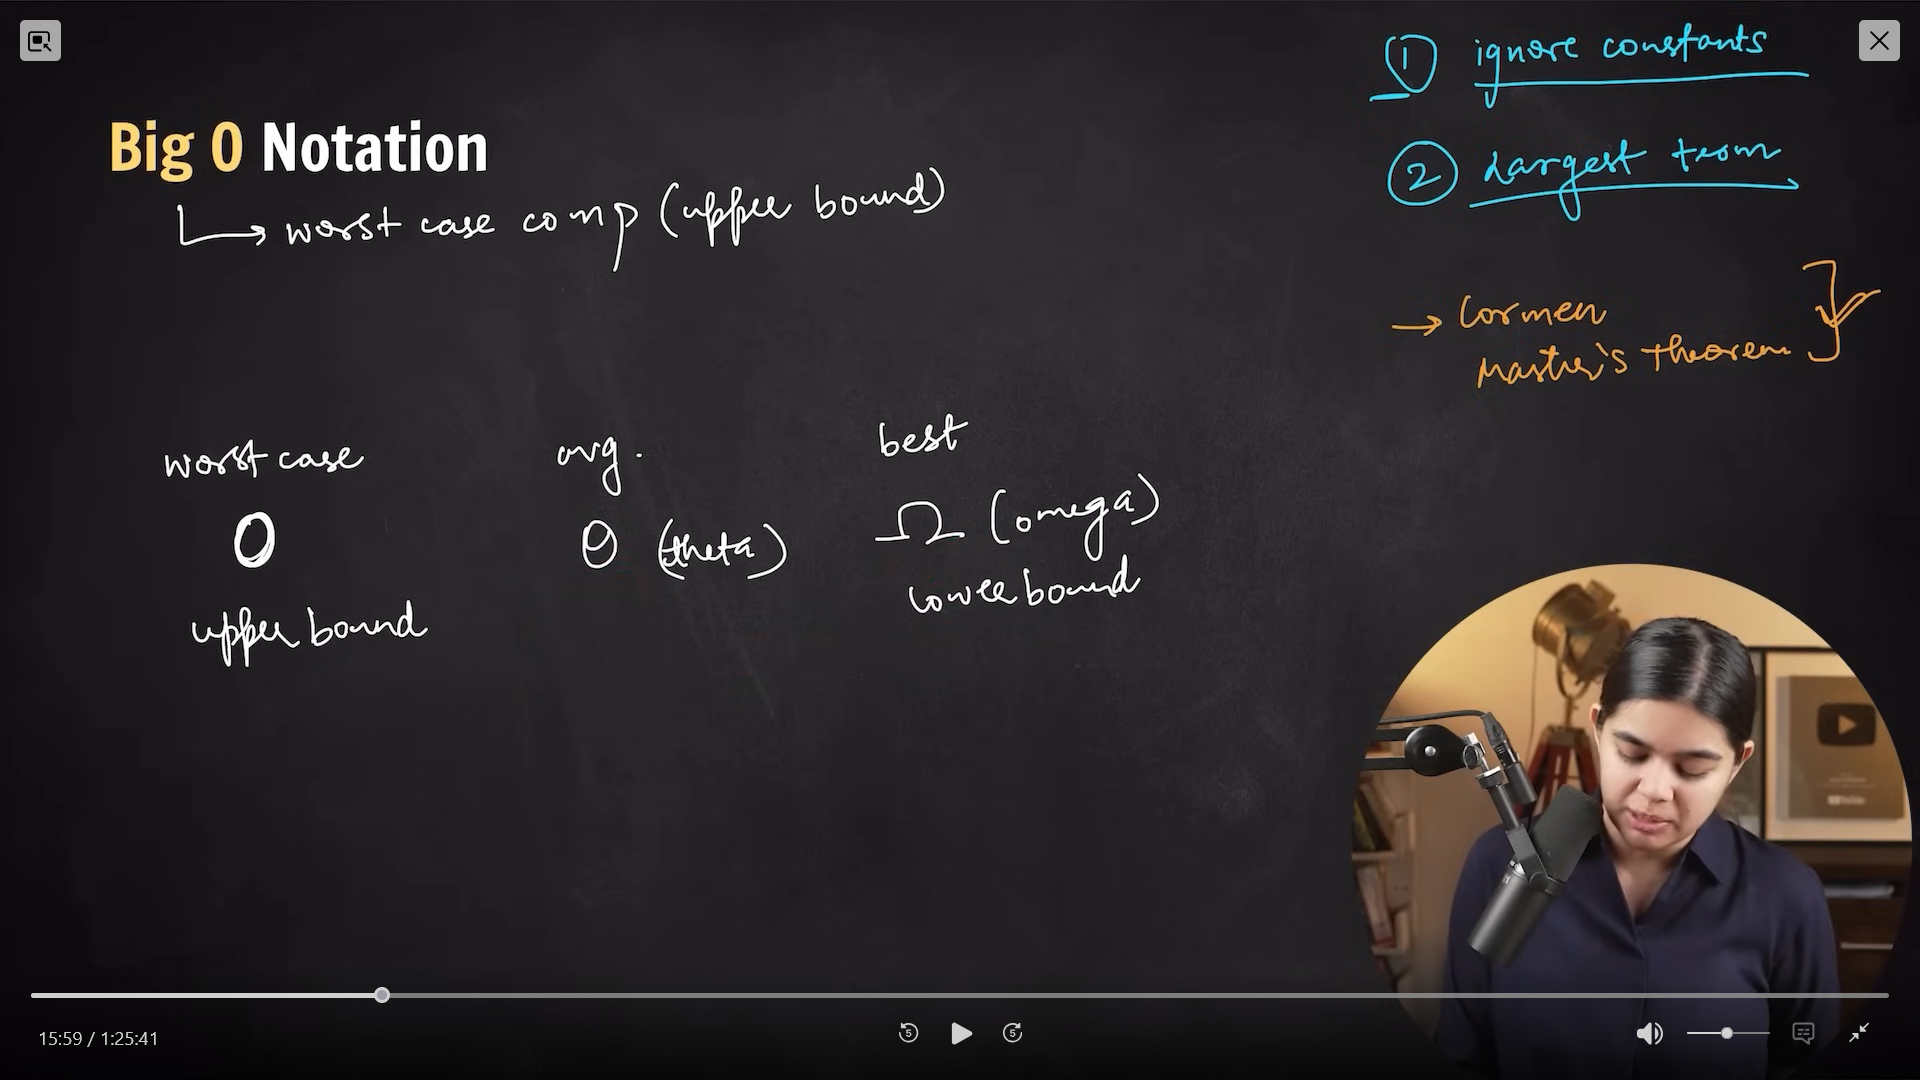 Big O Notation
worst case comp (upper bound)
1 ignore constants
2 Largest term
→ Cormen
Master's theorem
worst case
O
upper bound
avg.
θ (theta)
best
Ω (omega)
lower bound
5
5
15:59 / 1:25:41